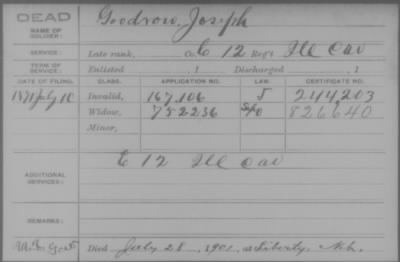 DEAD
NAME OF SOLDIER: Goodrow, Joseph
SERVICE: Late rank, Co. C 12 Reg't Ill Cav
TERM OF SERVICE: Enlisted , 1 Discharged , 1
DATE OF FILING. CLASS. APPLICATION NO. LAW. CERTIFICATE NO.
July 10 Invalid, 167,106 244,203
Widow, 782236 826640
Minor,
ADDITIONAL SERVICES: C 12 Ill Cav
REMARKS:
Died July 28, 1901, at Liberty, Neb.